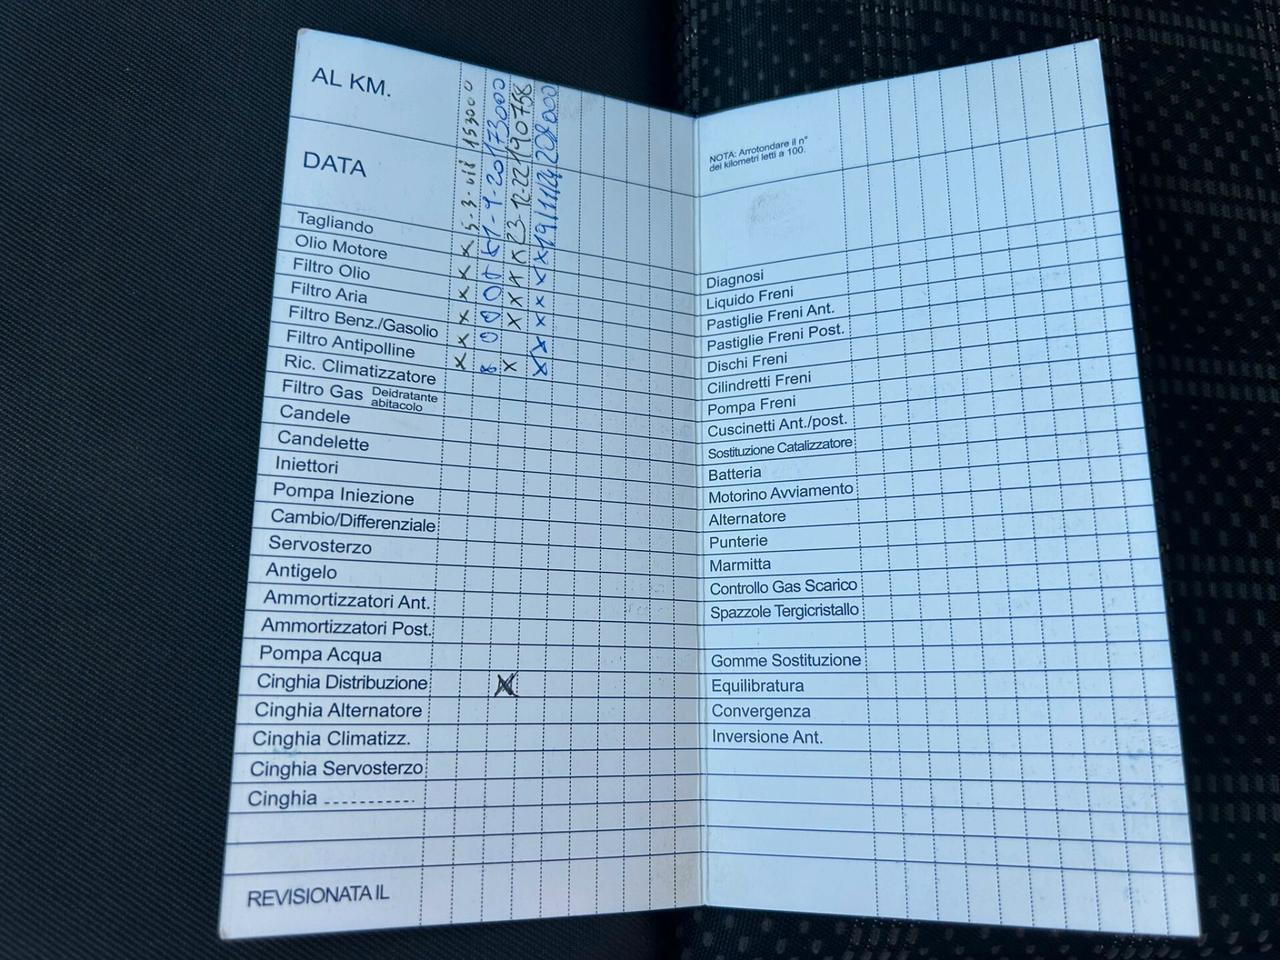 AL KM.
153000
173000
190758
208000
DATA
23-12-22
19/11/24
Tagliando
Olio Motore
Filtro Olio
Filtro Aria
Filtro Benz./Gasolio
Filtro Antipolline
Ric. Climatizzatore
Filtro Gas Deidratante abitacolo
Candele
Candelette
Iniettori
Pompa Iniezione
Cambio/Differenziale
Servosterzo
Antigelo
Ammortizzatori Ant.
Ammortizzatori Post.
Pompa Acqua
Cinghia Distribuzione X
Cinghia Alternatore
Cinghia Climatizz.
Cinghia Servosterzo
Cinghia ----------
REVISIONATA IL
NOTA: Arrotondare il n°
dei kilometri letti a 100.
Diagnosi
Liquido Freni
Pastiglie Freni Ant.
Pastiglie Freni Post.
Dischi Freni
Cilindretti Freni
Pompa Freni
Cuscinetti Ant./post.
Sostituzione Catalizzatore
Batteria
Motorino Avviamento
Alternatore
Punterie
Marmitta
Controllo Gas Scarico
Spazzole Tergicristallo
Gomme Sostituzione
Equilibratura
Convergenza
Inversione Ant.